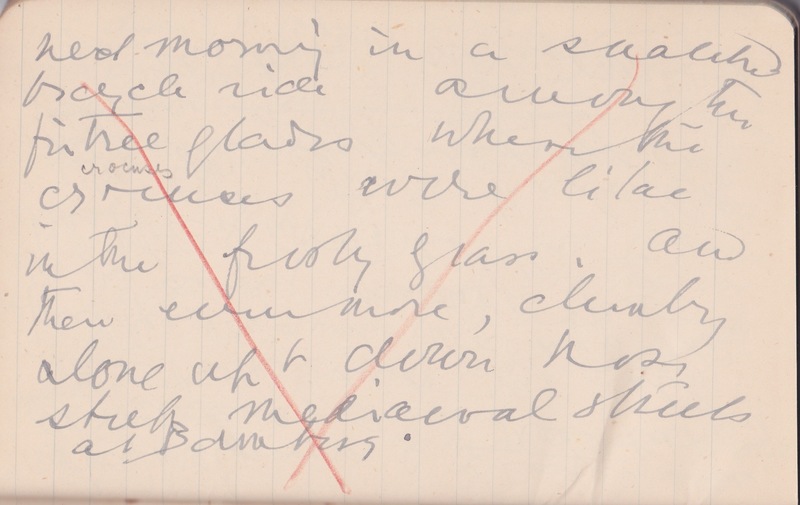 next morning in a snatched
bicycle ride among the
firtree glades where the
crocuses
crocuses were lilac
in the frosty grass. And
then even more, climbing
alone up & down those
steep mediaeval streets
at